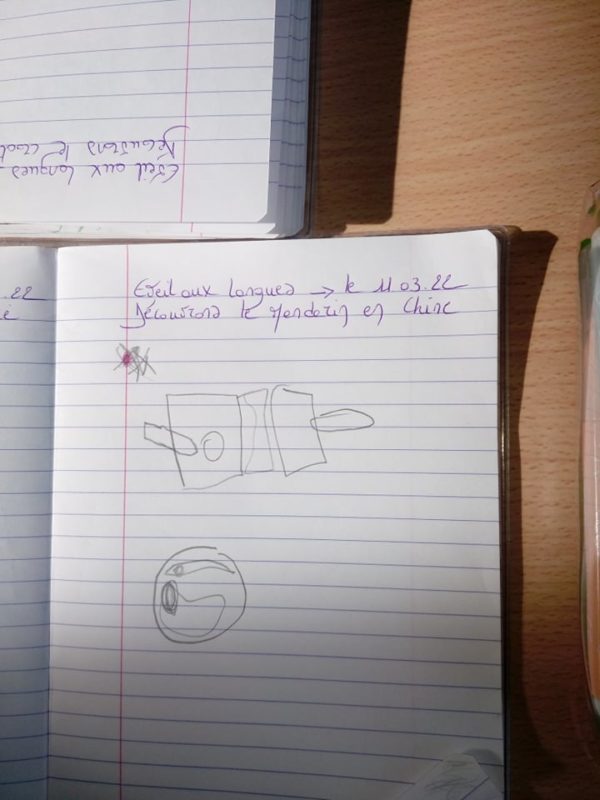 Eveil aux langues
Découvrons le
.22
Eveil aux langues → le 11.03.22
Découvrons le Mandarin en Chine